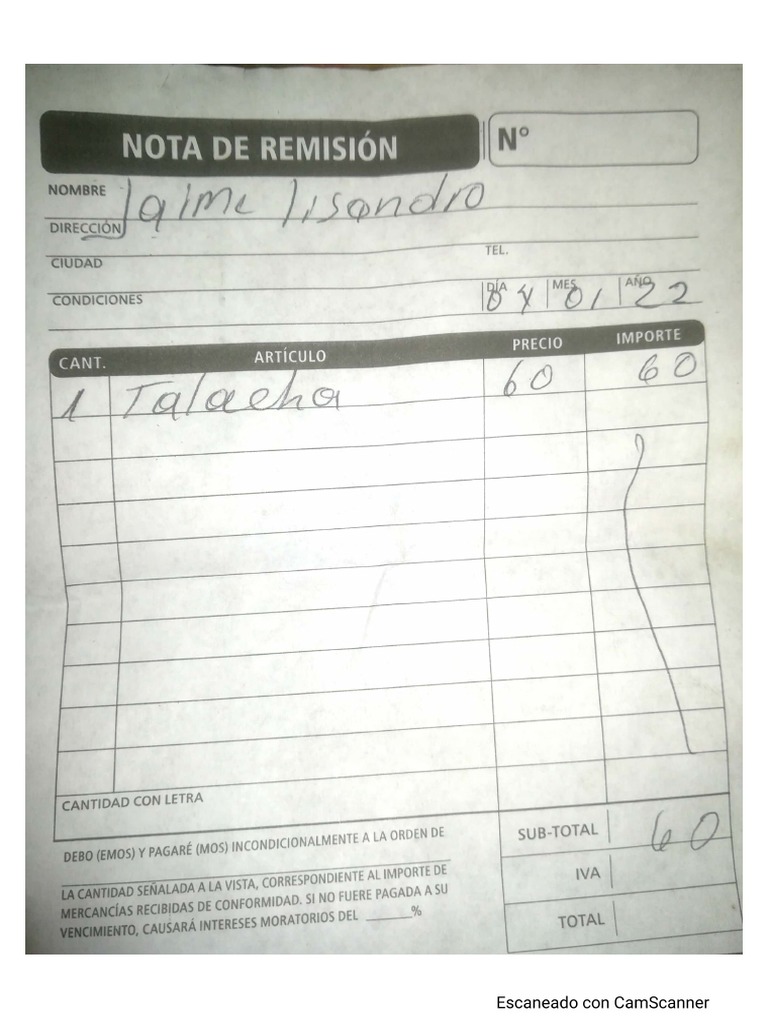 NOTA DE REMISIÓN
N°
NOMBRE Jaime Lisandro
DIRECCIÓN
CIUDAD TEL.
CONDICIONES DÍA 04 MES 01 AÑO 22
CANT. ARTÍCULO PRECIO IMPORTE
1 Talacha 60 60
CANTIDAD CON LETRA
DEBO (EMOS) Y PAGARÉ (MOS) INCONDICIONALMENTE A LA ORDEN DE
LA CANTIDAD SEÑALADA A LA VISTA, CORRESPONDIENTE AL IMPORTE DE
MERCANCÍAS RECIBIDAS DE CONFORMIDAD. SI NO FUERE PAGADA A SU
VENCIMIENTO, CAUSARÁ INTERESES MORATORIOS DEL ______%
SUB-TOTAL 60
IVA
TOTAL
Escaneado con CamScanner